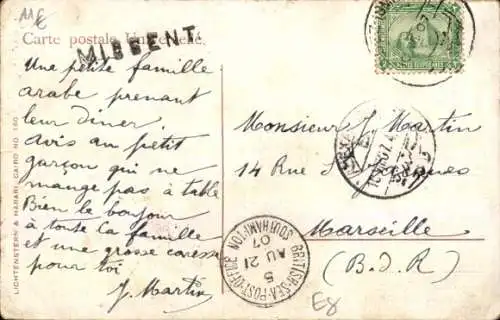 11€
Carte postale
MISSENT
Une petite famille
arabe prenant
leur dîner.
Avis au petit
garçon qui ne
mange pas à table
Bien le bonjour
à toute la famille
et une grosse caresse
pour toi
J. Martin
Monsieur J. Martin
14 Rue St Jacques
Marseille
(B.d.R)
LICHTENSTERN & HARARI, CAIRO NO. 160
BRITISH-SEA-POST-OFFICE SOUTHAMPTON
5
AU 21
07
E8